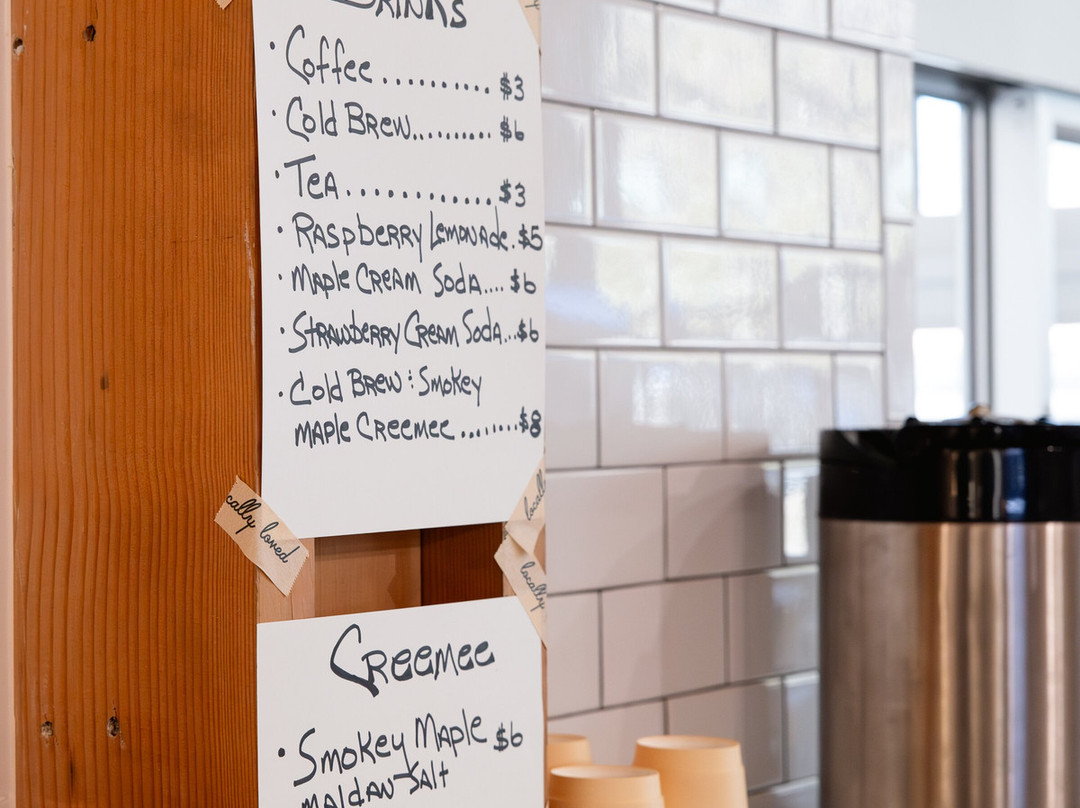 DRINKS
• Coffee.......... $3
• Cold Brew......... $6
• Tea............ $3
• Raspberry Lemonade. $5
• Maple Cream Soda.... $6
• Strawberry Cream Soda... $6
• Cold Brew : Smokey
Maple Creemee........ $8
cally loved
locall
locally
Creemee
• Smokey Maple $6
Maldan Salt